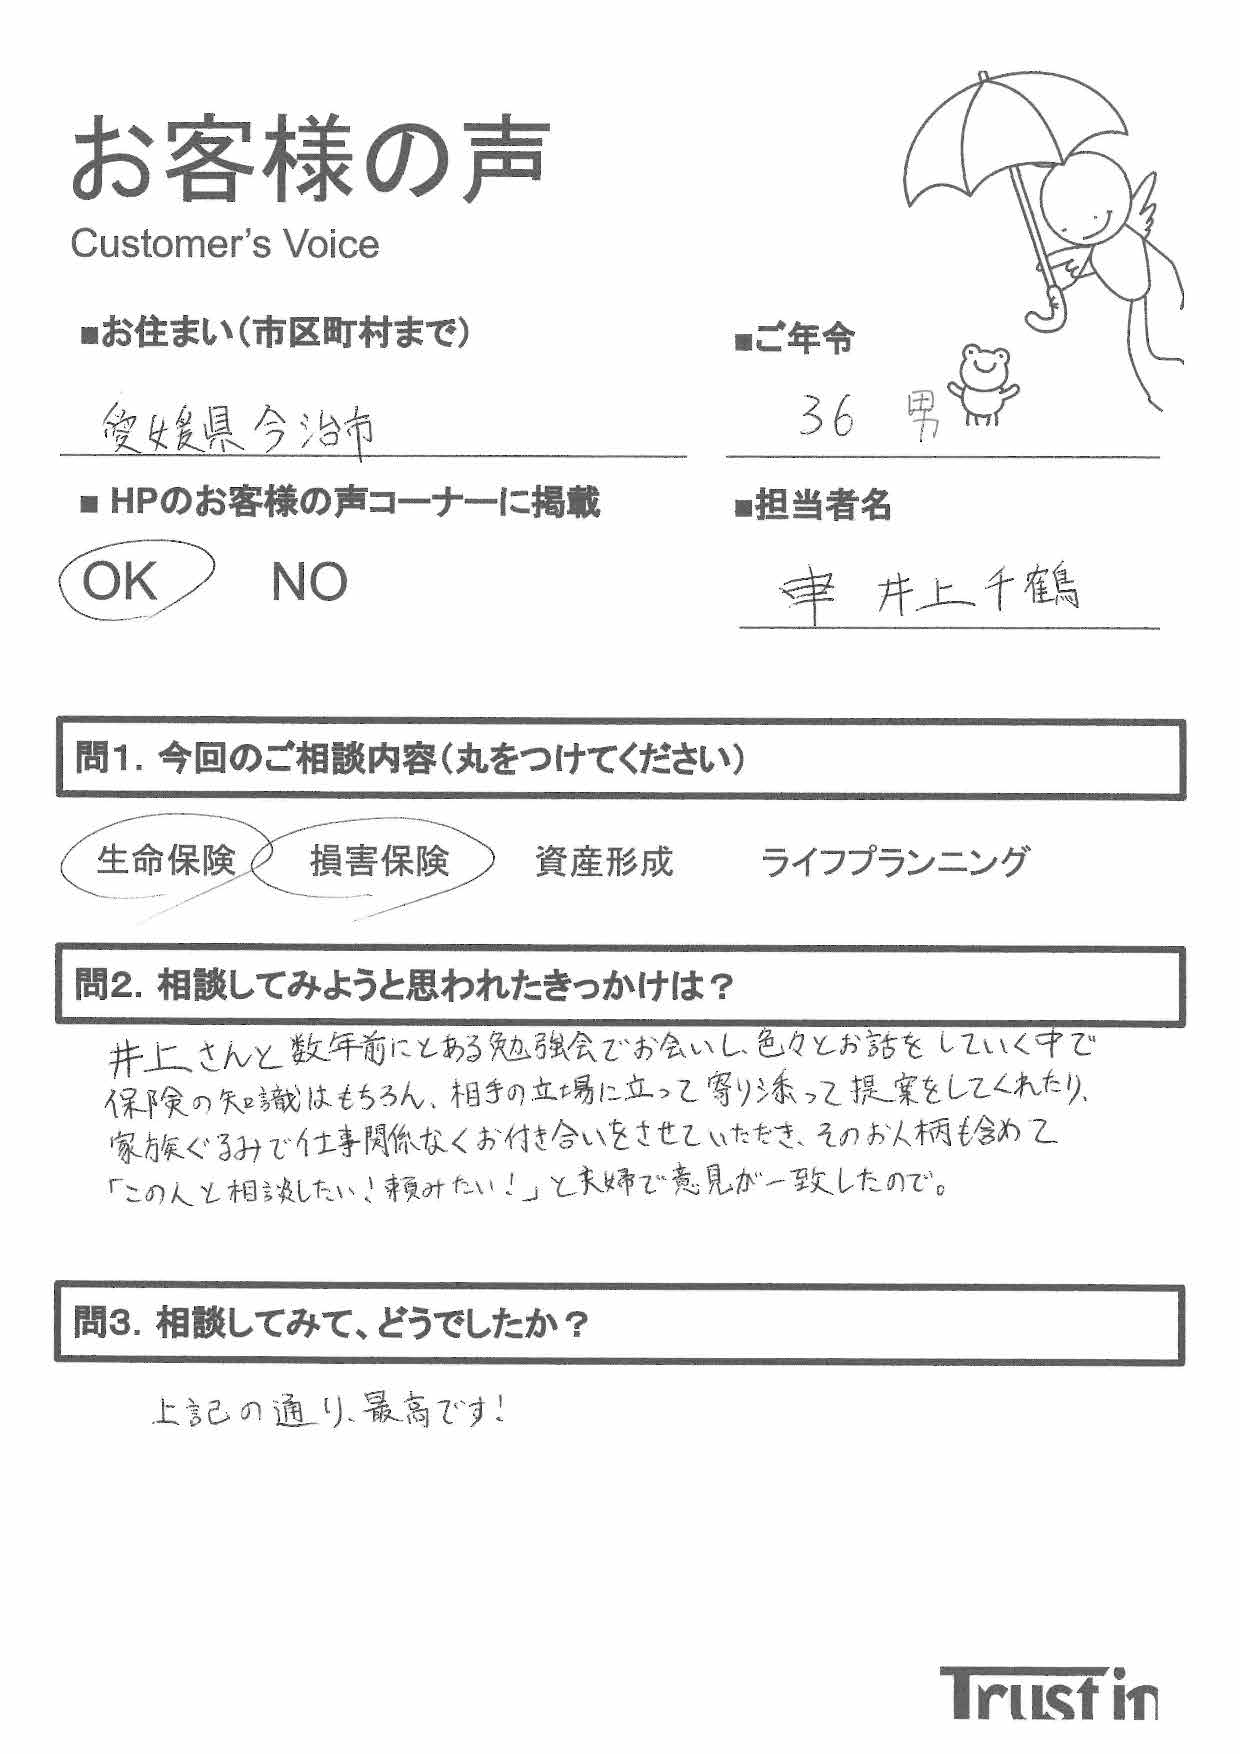 お客様の声
Customer's Voice
■お住まい（市区町村まで）
■ご年令
愛媛県今治市
36 男
■ HPのお客様の声コーナーに掲載
■担当者名
OK NO
井上千鶴
問1. 今回のご相談内容（丸をつけてください）
生命保険 損害保険 資産形成 ライフプランニング
問2. 相談してみようと思われたきっかけは？
井上さんと数年前にとある勉強会でお会いし、色々とお話をしていく中で
保険の知識はもちろん、相手の立場に立って寄り添って提案をしてくれたり、
家族ぐるみで仕事関係なくお付き合いをさせていただき、そのお人柄も含めて
「この人と相談したい！頼みたい！」と夫婦で意見が一致したので。
問3. 相談してみて、どうでしたか？
上記の通り、最高です！
Trust in